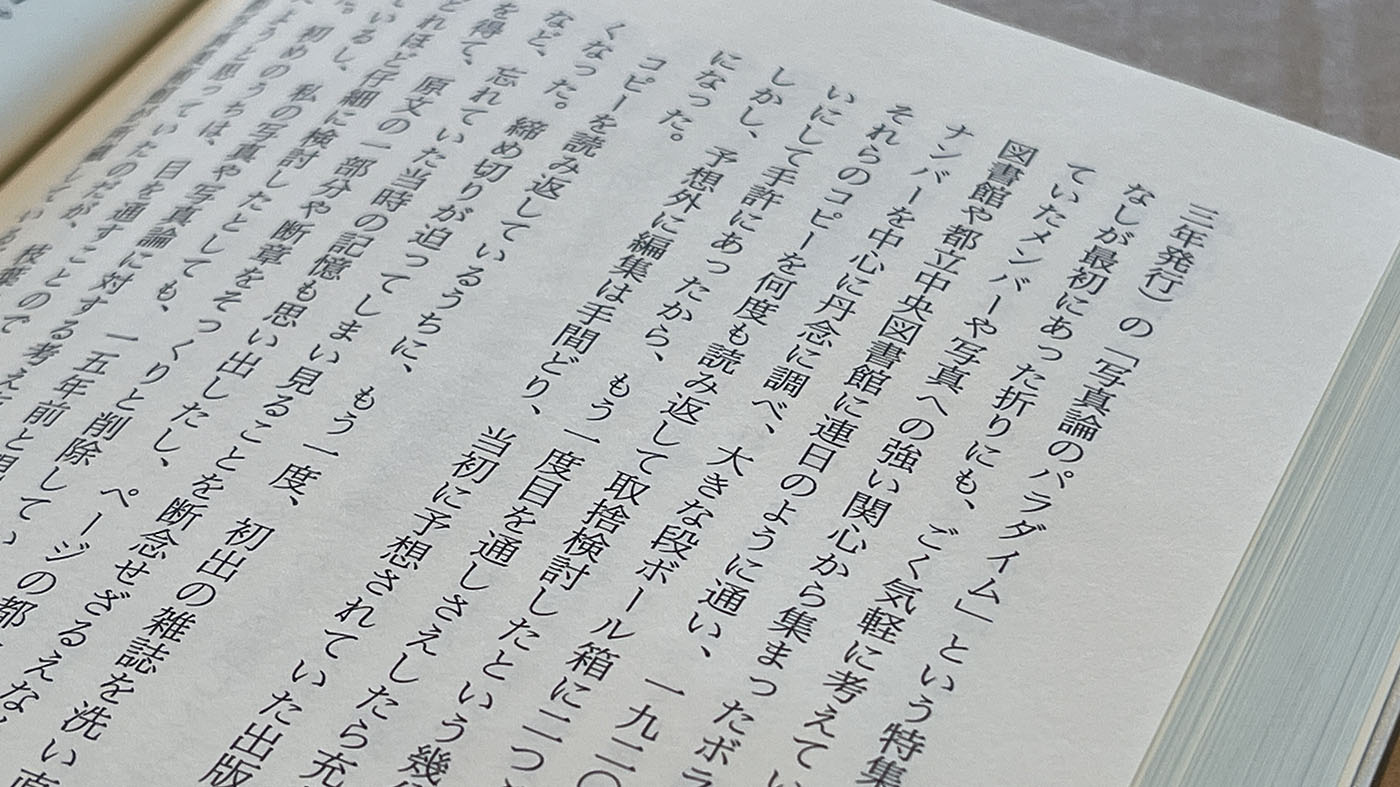 三年発行）の「写真論のパラダイム」という特集
なしが最初にあった折りにも、ごく気軽に考えてい
ていたメンバーや写真への強い関心から集まったボラ
図書館や都立中央図書館に連日のように通い、一九二〇
ナンバーを中心に丹念に調べ、大きな段ボール箱に二つ
それらのコピーを何度も読み返して取捨検討したという幾
いにして手許にあったから、もう一度目を通しさえしたら充
しかし、予想外に編集は手間どり、当初に予想されていた出版
になった。
コピーを読み返しているうちに、もう一度、初出の雑誌を洗い直
くなった。締め切りが迫ってしまい見ることを断念せざるえな
など、忘れていた当時の記憶も思い出したし、
を得て、原文の一部分や断章をそっくりと削除して、ページの都
どれほど仔細に検討したとしても、一五年前と
いるし、私の写真や写真論に対する考え
初めのうちは、
ようと思っていたのだが、